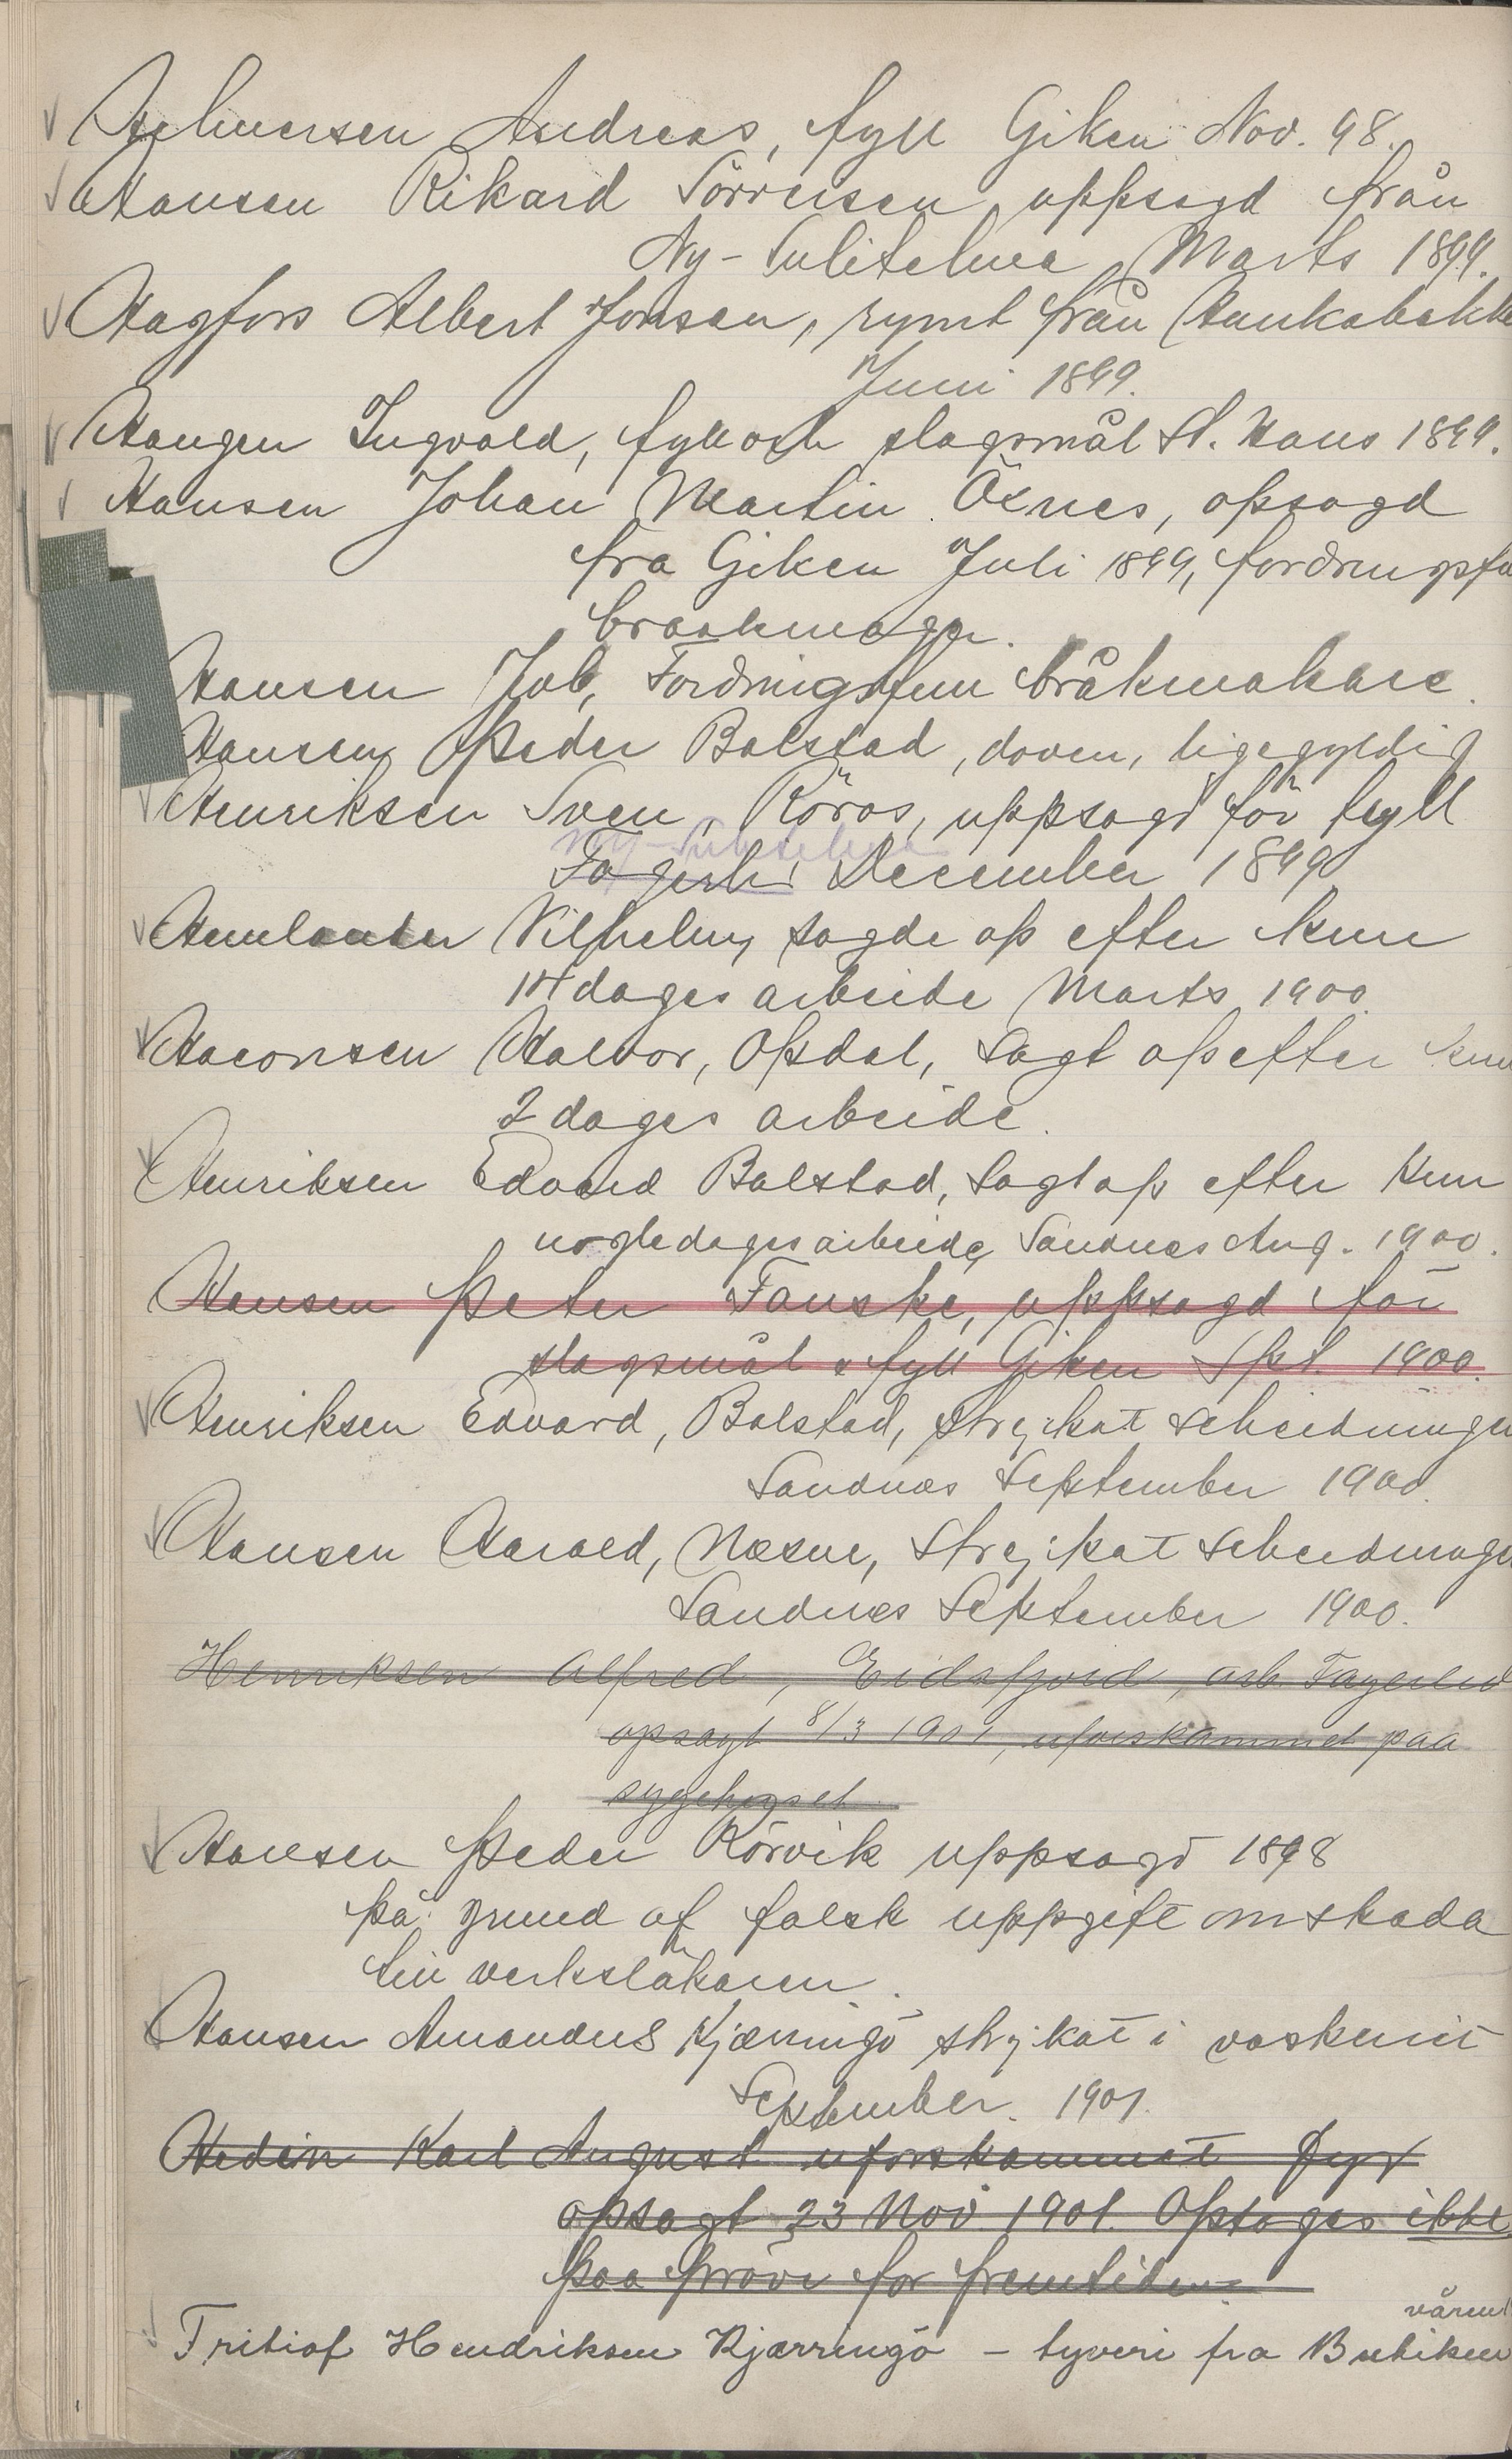 Helmersen Andreas, fyll Giken Nov. 98.
Hansen Rikard Sörrensen uppsagd från
Ny-Sulitelma Marts 1899.
Hagfors Albert Jonsen, rymt från Hankabakke
Juni 1899.
Haugen Ingvald, fyll och slagsmål St. Hans 1899.
Hansen Johan Martin Öxnes, opsagd
fra Giken Juli 1899, fordringsfu
braakmager.
Hansen Job, Fordringsfull bråkmakare.
Hansen Peder Balstad, doven, ligegyldig
Henriksen Sven Röros, uppsagd för fyll
Ny-Sulitelma
Fagerli December 1899
Hemlander Vilhelm, sagde op efter kun
14 dages arbeide Marts 1900.
Haconsen Halvor, Opdal, Sagt op efter kun
2 dages arbeide.
Henriksen Edvard Balstad, Sagt op efter kun
nogle dages arbeide, Sandnes Aug. 1900.
Hansen Peter Fauske, uppsagd för
slagsmål & fyll Giken Spt. 1900.
Henriksen Edvard, Balstad, Strejkat scheidningen
Sandnes September 1900.
Hansen Harald, Næsne, Strejkat scheidningen
Sandnes September 1900.
Henriksen Alfred, Eidsfjord, arb. Fagerlid
opsagt 8/3 1901, uforskammet paa
sygehuset
Hansen Peder Rörvik uppsagd 1898
på grund af falsk uppgift om skada
till verksläkaren.
Hansen Amandus Kjærringö strejkat i vaskeriet
September. 1901.
Hedin Karl August uforskammet fyr
opsagt 23 Nov 1901. Optages ikke
paa pröve for fremtiden.
Fritiof Hendriksen Kjærringö – tyveri fra Butiken